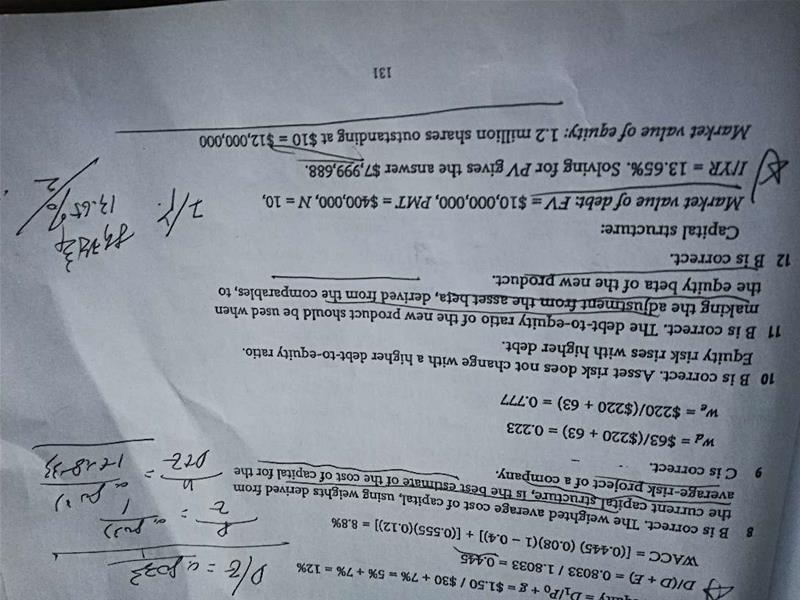 quity = D₁/P₀ + g = $1.50 / $30 + 7% = 5% + 7% = 12%
D/(D + E) = 0.8033 / 1.8033 = 0.445
WACC = [(0.445) (0.08)(1 − 0.4)] + [(0.555)(0.12)] = 8.8%
8 B is correct. The weighted average cost of capital, using weights derived from
the current capital structure, is the best estimate of the cost of capital for the
average-risk project of a company.
9 C is correct.
w_d = $63/($220 + 63) = 0.223
w_e = $220/($220 + 63) = 0.777
10 B is correct. Asset risk does not change with a higher debt-to-equity ratio.
Equity risk rises with higher debt.
11 B is correct. The debt-to-equity ratio of the new product should be used when
making the adjustment from the asset beta, derived from the comparables, to
the equity beta of the new product.
12 B is correct.
Capital structure:
Market value of debt: FV = $10,000,000, PMT = $400,000, N = 10,
I/YR = 13.65%. Solving for PV gives the answer $7,999,688.
Market value of equity: 1.2 million shares outstanding at $10 = $12,000,000
131
D/E =
I/Y.
13.65%
2